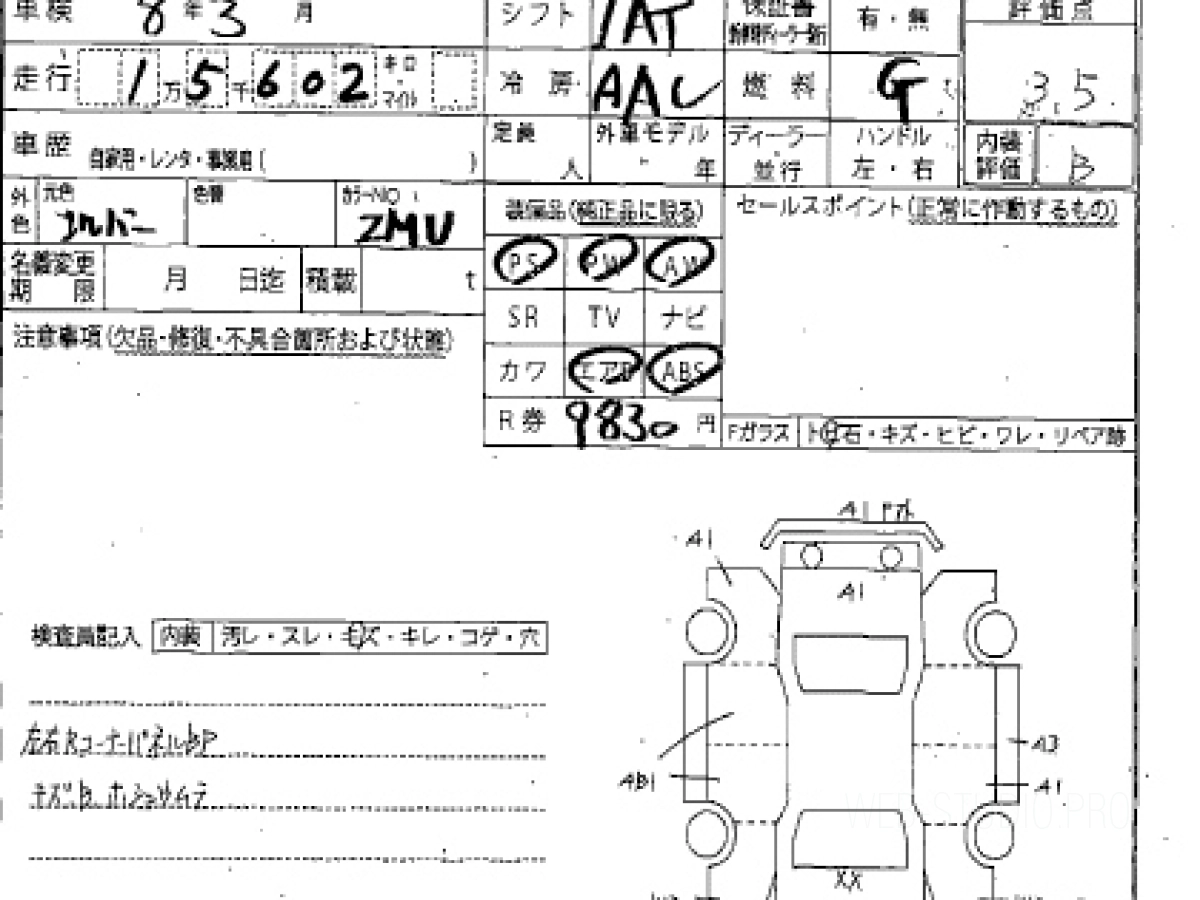 車検 8年3月
シフト IAT
保証書
有・無
評価点
走行 1万5千602 キロ・マイル
冷房 AAC
燃料 G
3.5
車歴 自家用・レンタ・事業用( )
定員 人
外車モデル 年
ディーラー・並行
ハンドル 左・右
内装評価 B
外色 元色 シルバー
色替
カラーNO ZMU
装備品(純正品に限る)
セールスポイント(正常に作動するもの)
名義変更期限 月 日迄
積載 t
PS PW AW
SR TV ナビ
注意事項(欠品・修復・不具合箇所および状態)
カワ エアB ABS
R券 9830円
Fガラス 飛石・キズ・ヒビ・ワレ・リペア跡
A1
A1
A1
検査員記入 内装 汚レ・スレ・キズ・キレ・コゲ・穴
左右Rコーナーパネル
A3
AB1
A1
WEB-STUDIO.PRO
XX